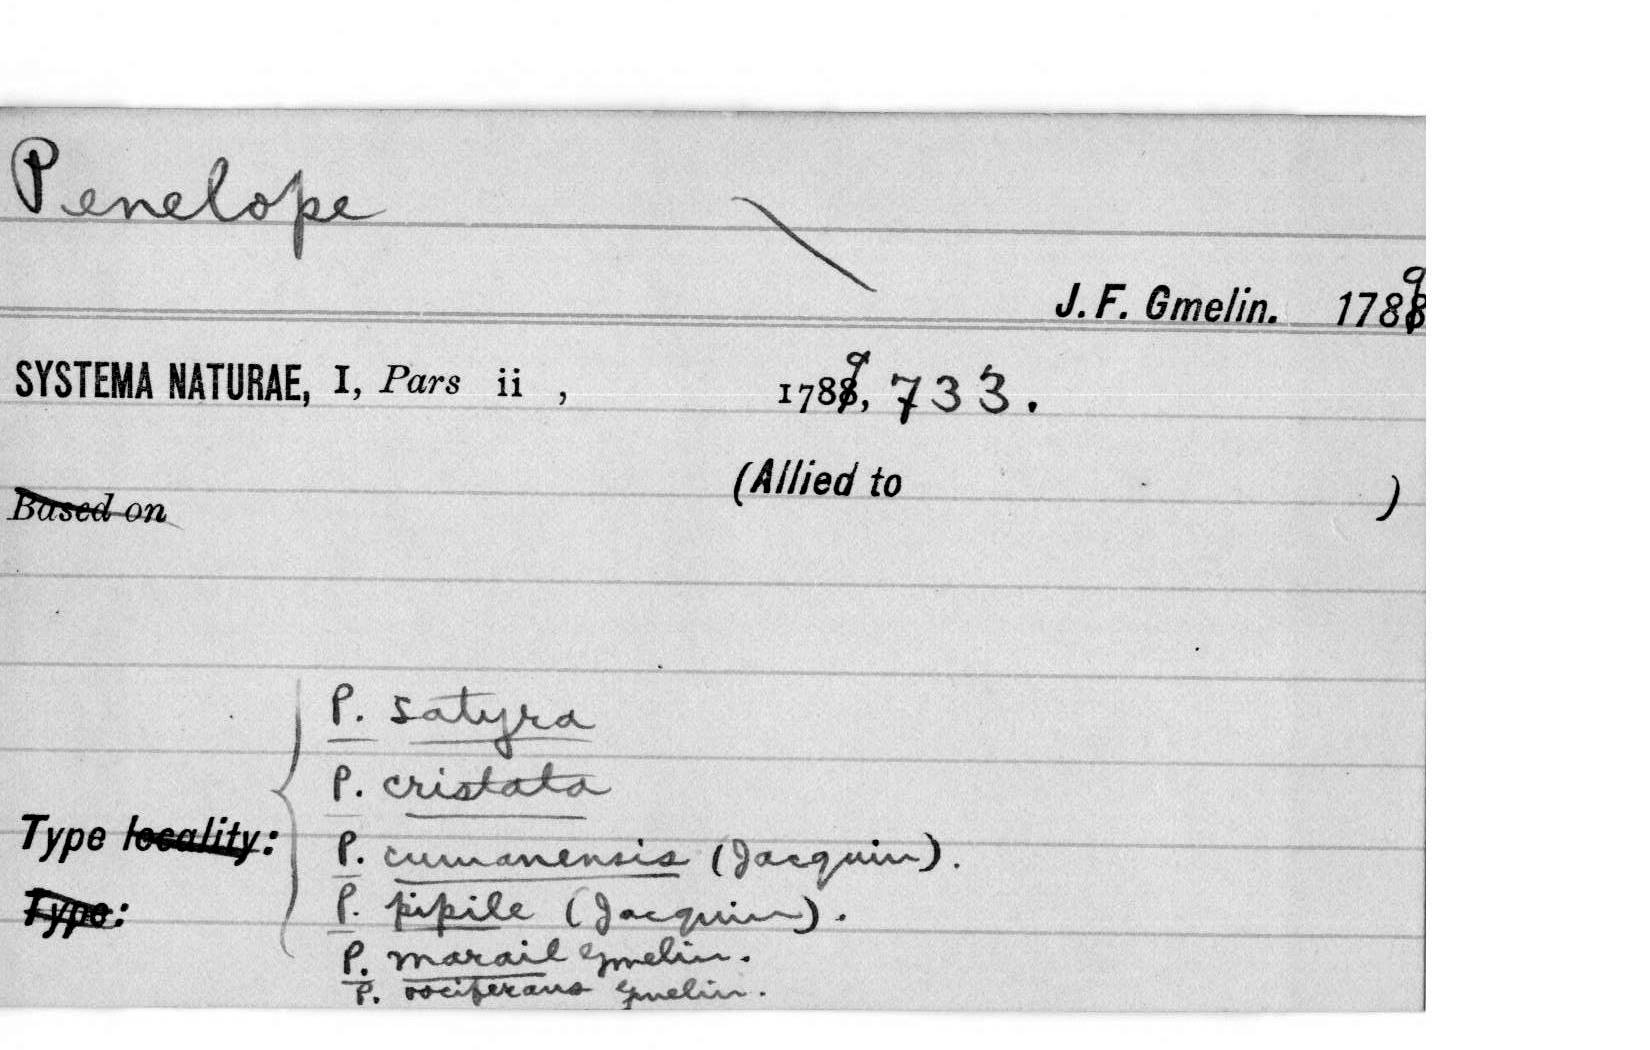 Penelope
J. F. Gmelin. 1789
SYSTEMA NATURAE, I, Pars ii , 1789, 733.
(Allied to )
Based on
P. satyra
P. cristata
Type locality:
P. cumanensis (Jacquin).
Type:
P. pipile (Jacquin).
P. marail Gmelin.
P. vociferans Gmelin.